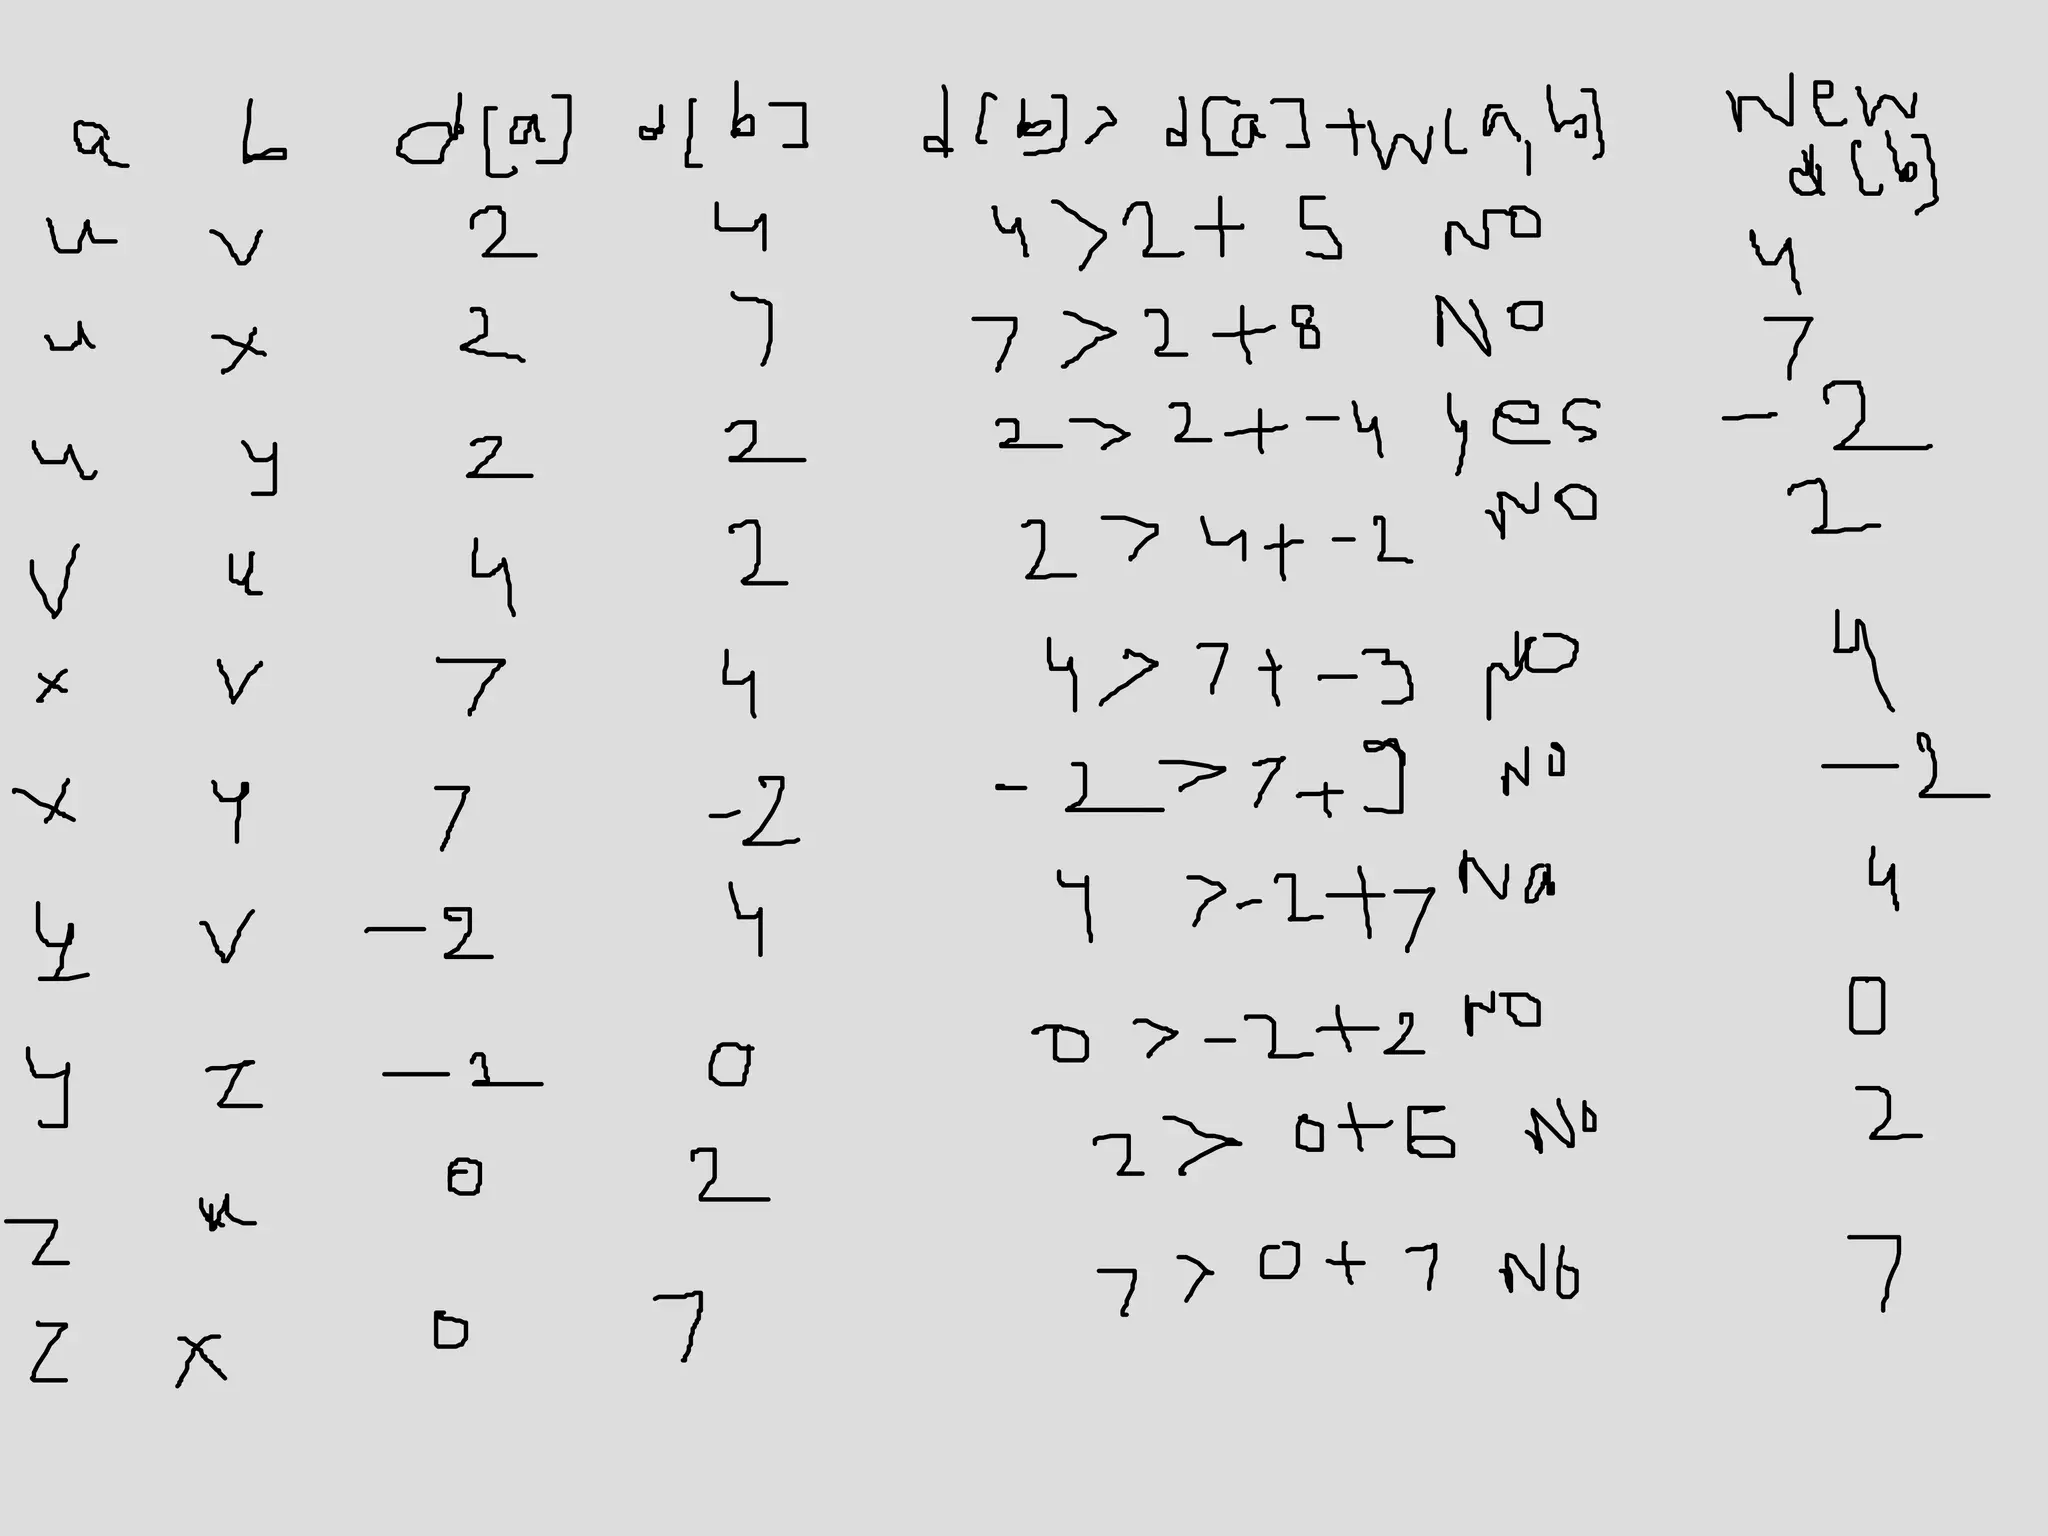 a b d[a] d[b] d[b] > d[a] + w[a,b] New d[b]
u v 2 4 4 > 2 + 5 NO 4
u x 2 7 7 > 2 + 8 NO 7
u y 2 2 2 > 2 + -4 yes -2
v u 4 2 2 > 4 + -2 NO 2
x v 7 4 4 > 7 + -3 NO 4
x y 7 -2 -2 > 7 + 9 NO -2
y v -2 4 4 > -2 + 7 NO 4
y z -2 0 0 > -2 + 2 NO 0
z u 0 2 2 > 0 + 6 NO 2
z x 0 7 7 > 0 + 7 NO 7